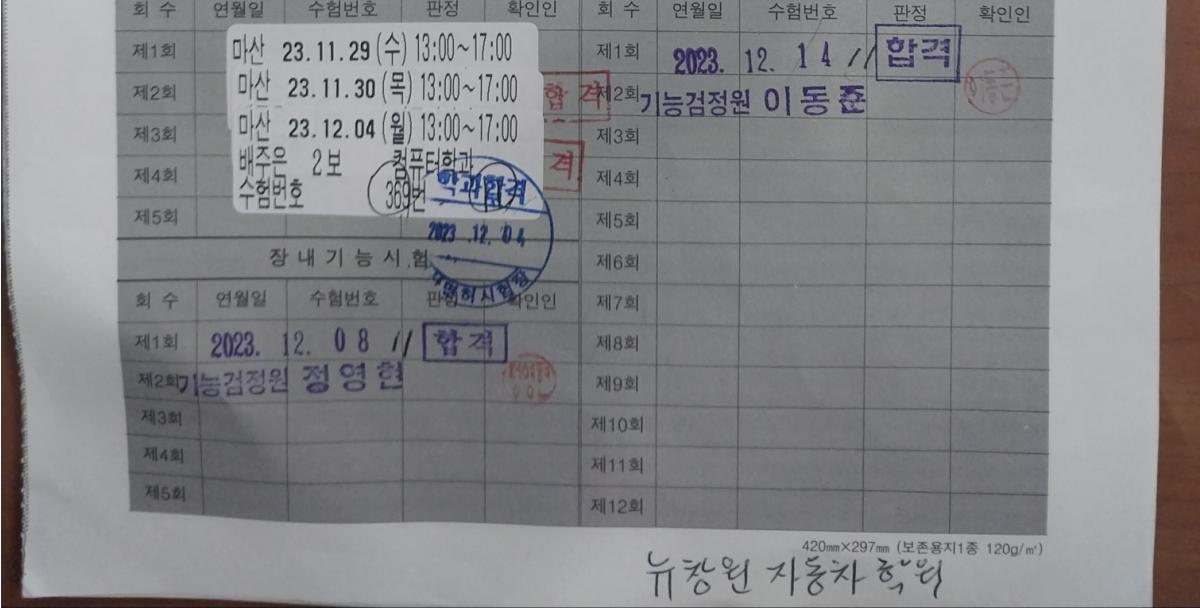 회 수 연월일 수험번호 판정 확인인
제1회
제2회
제3회
제4회
제5회
마산 23.11.29 (수) 13:00~17:00
마산 23.11.30 (목) 13:00~17:00
마산 23.12.04 (월) 13:00~17:00
배주은 2보 컴퓨터학과
수험번호 369번
합격
격
학과합격
2023 .12. 04
면허시험장
장 내 기 능 시 험
회 수 연월일 수험번호 판정 확인인
제1회 2023. 12. 08 // 합격
제2회 기능검정원 정영현
제3회
제4회
제5회
회 수 연월일 수험번호 판정 확인인
제1회 2023. 12. 14 // 합격
제2회 기능검정원 이동준
제3회
제4회
제5회
제6회
제7회
제8회
제9회
제10회
제11회
제12회
420㎜×297㎜ (보존용지1종 120g/㎡)
뉴창원 자동차 학원